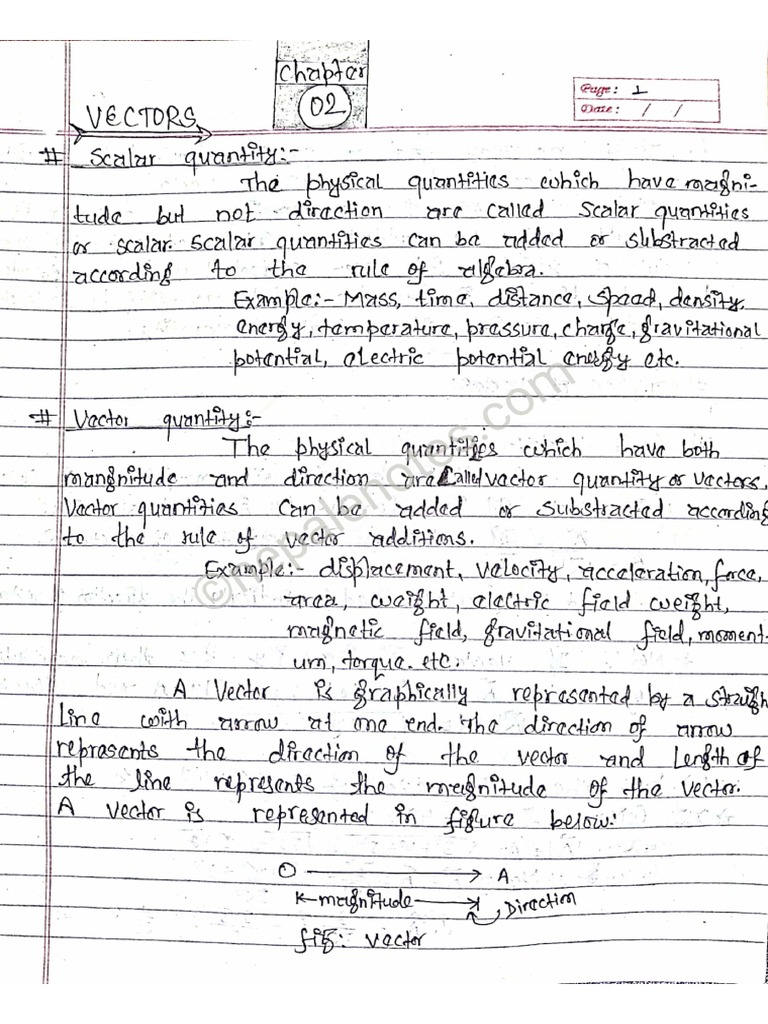 Chapter
02
Page: 1
Date: / /
VECTORS
# Scalar quantity:-
The physical quantities which have magni-
tude but not direction are called scalar quantities
or scalar. Scalar quantities can be added or substracted
according to the rule of algebra.
Example:- Mass, time, distance, speed, density,
energy, temperature, pressure, charge, gravitational
potential, electric potential energy etc.
# Vector quantity:-
The physical quantities which have both
mangnitude and direction are called vector quantity or vectors.
Vector quantities can be added or substracted according
to the rule of vector additions.
Example:- displacement, velocity, acceleration, force,
area, weight, electric field weight,
magnetic field, gravitational field, moment-
um, torque. etc.
A Vector is graphically represented by a straigh
line with arrow at one end. The direction of arrow
represents the direction of the vector and length of
the line represents the magnitude of the vector.
A vector is represented in figure below:
O A
magnitude Direction
fig: vector
©nepalenotes.com